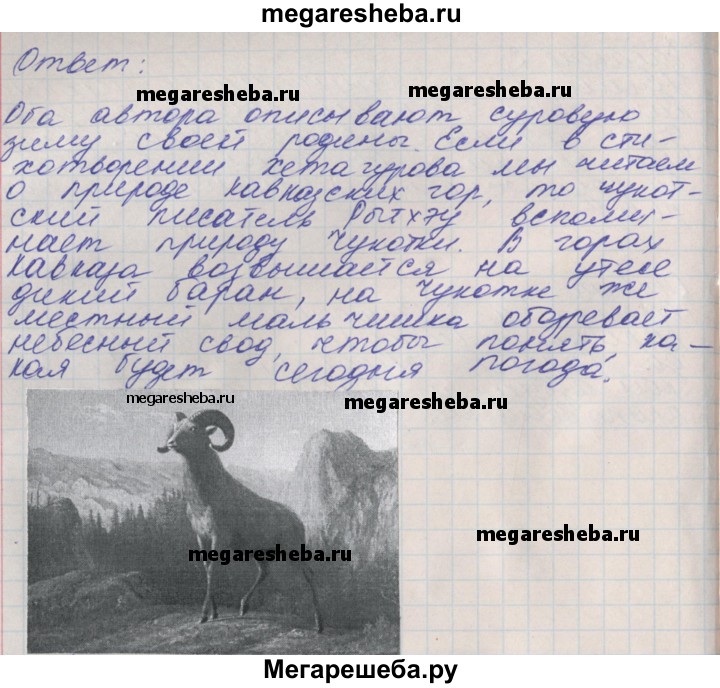 megaresheba.ru
Ответ:
megaresheba.ru
megaresheba.ru
Оба автора описывают суровую
зиму своей родины. Если в сти-
хотворении Хетагурова мы читаем
о природе кавказских гор, то чукот-
ский писатель Рытхэу вспоми-
нает природу Чукотки. В горах
Кавказа возвышается на утесе
дикий баран, на Чукотке же
местный мальчишка обозревает
небесный свод, чтобы понять ка-
кая будет сегодня погода.
megaresheba.ru
megaresheba.ru
megaresheba.ru
megaresheba.ru
Мегарешеба.ру